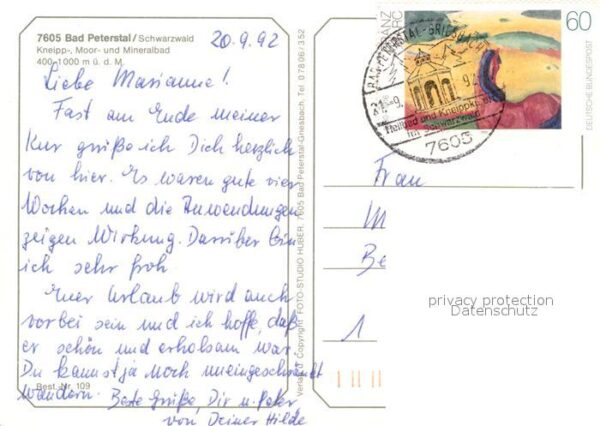 7605 Bad Peterstal/Schwarzwald
Kneipp-, Moor- und Mineralbad
400-1000 m ü. d. M.
20.9.92
Liebe Marianne!
Fast am Ende meiner
Kur grüße ich Dich herzlich
von hier. Es waren gute vier
Wochen und die Anwendungen
zeigen Wirkung. Darüber bin
ich sehr froh.
Euer Urlaub wird auch
vorbei sein und ich hoffe, daß
er schön und erholsam war.
Du kannst ja noch uneingeschränkt
wandern. Beste Grüße, Dir u. Peter
von Deiner Hilde
Best. Nr. 109
Copyright FOTO-STUDIO HUBER, 7605 Bad Peterstal-Griesbach, Tel. 07806/352
60
DEUTSCHE BUNDESPOST
BAD PETERSTAL-GRIESBACH
Heilbad und Kneippkurort
im Schwarzwald
7605
Frau
M
Be
1
privacy protection
Datenschutz